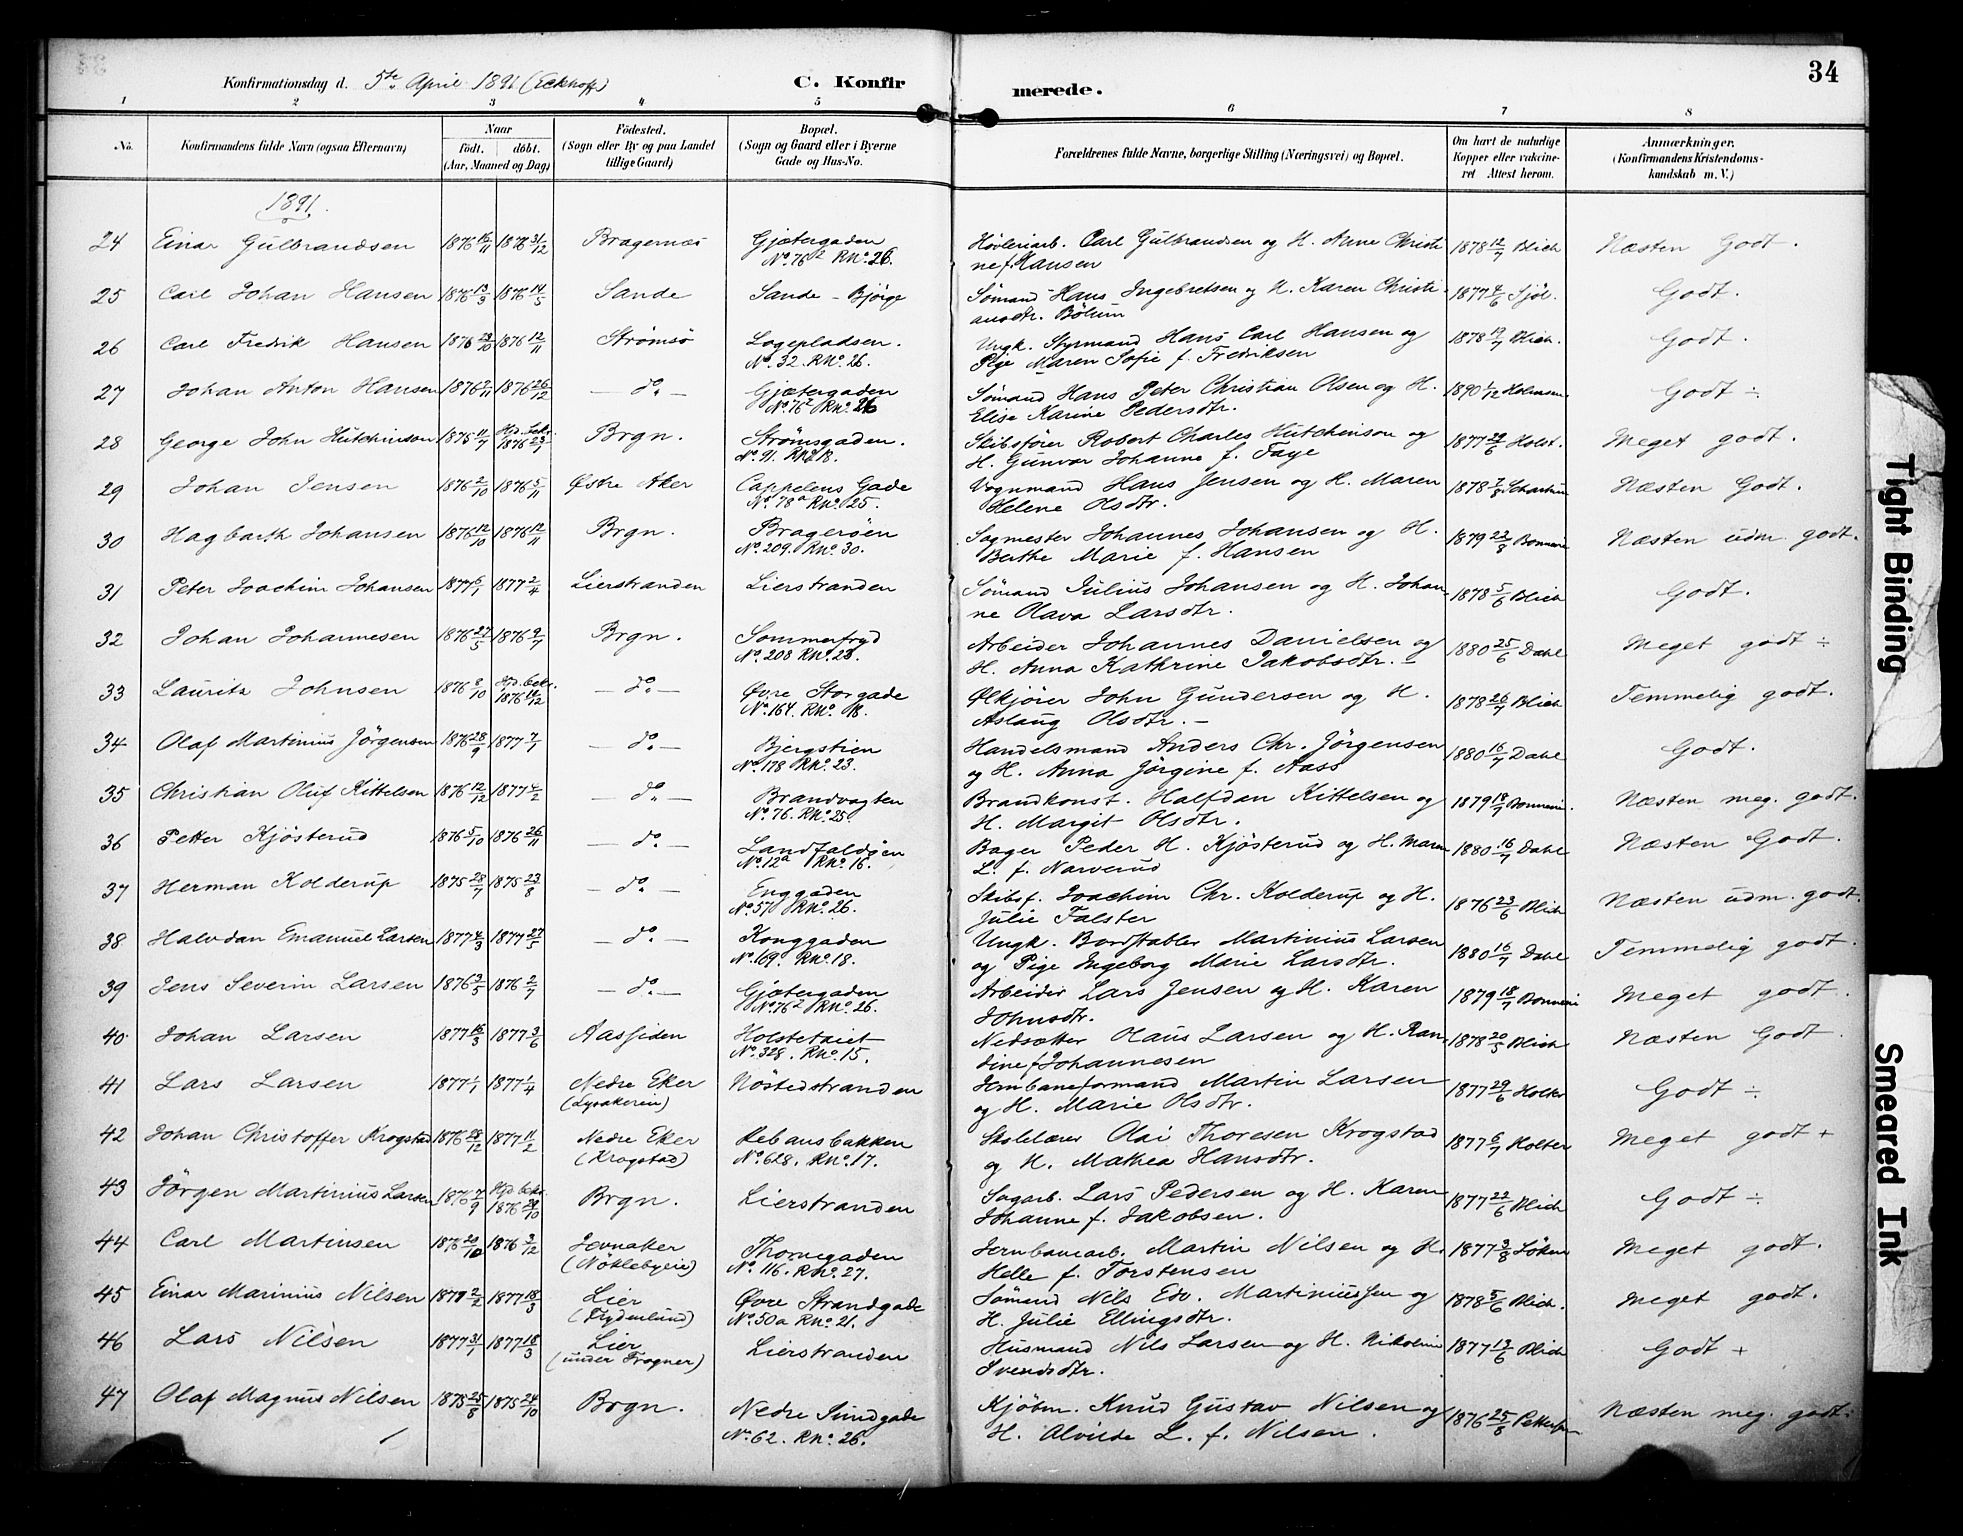 34
Konfirmationsdag d. 5te April 1891 (Eckhoff)
C. Konfirmerede.
1 2 3 4 5 6 7 8
No. Konfirmandens fulde Navn (ogsaa Efternavn) Naar født. døbt. (Aar, Maaned og Dag) Fødested. (Sogn eller By og paa Landet tillige Gaard) Bopæl. (Sogn og Gaard eller i Byerne Gade og Hus-No.) Forældrenes fulde Navne, borgerlige Stilling (Næringsvei) og Bopæl. Om havt de naturlige Kopper eller vaccineret Attest herom. Anmærkninger. (Konfirmandens Kristendomskundskab m. V.)
1891.
24 Einar Gulbrandsen 1876 16/11 1876 31/12 Bragernæs Gjætergaden No. 76² RNo. 26. Høvleriarb. Carl Gulbrandsen og H. Anne Christine f. Hansen 1878 12/7 Blich Næsten Godt.
25 Carl Johan Hansen 1876 13/3 1876 14/5 Sande Sande - Bjørge Sømand Hans Ingebretsen og H. Karen Christi ansdtr. Bølum 1877 4/6 Sjöl. Godt.
26 Carl Fredrik Hansen 1876 29/10 1876 12/11 Strømsö Logepladsen. No. 32. RNo. 26. Ungk. Styrmand Hans Carl Hansen og Pige Maren Sofie f. Fredriksen 1878 19/7 Blich. Godt.
27 Johan Anton Hansen 1876 9/11 1876 26/12 — do. — Gjætergaden No. 76² RNo. 26 Sømand Hans Peter Christian Olsen og H. Elise Karine Pedersdtr. 1890 1/12 Holmsen Godt ÷
28 George John Hutchinson 1875 11/7 Hjd. bekr. 1876 23/1 Brgn. Strømsgaden. No. 91. RNo. 18. Skibsfører Robert Charles Hutchinson og H. Gunvor Johanne f. Faye 1877 29/6 Holst. Meget godt.
29 Johan Jensen 1876 2/10 1876 5/11 Østre Aker Cappelens Gade No. 78a RNo. 25. Vognmand Hans Jensen og H. Maren Helene Olsdtr. 1878 7/8 Næsten Godt.
30 Hagbarth Johansen 1876 12/10 1876 12/11 Brgn. Bragerøen No. 209. RNo. 30. Sagmester Johannes Johansen og H. Berthe Marie f. Hansen 1879 22/8 Bonnevie Næsten udm. godt.
31 Peter Joachim Johansen 1877 6/1 1877 2/4 Lierstranden Lierstranden Sømand Julius Johansen og H. Johanne Olava Larsdtr. 1878 5/6 Blich Godt.
32 Johan Johannesen 1876 27/5 1876 9/7 Brgn. Sommerfryd No. 208 RNo. 28. Arbeider Johannes Danielsen og H. Anna Kathrine Jakobsdtr. — 1880 25/6 Dahl Meget godt ÷
33 Lauritz Johnsen 1876 8/10 Hjd. bekr. 1876 10/12 — do. — Øvre Storgade No. 164. RNo. 18. Ølkjører John Gundersen og H. Aslaug Olsdtr. — 1878 26/7 Blich Temmelig godt.
34 Olaf Martinius Jörgensen 1876 28/9 1877 7/1 — do. — Bjergstien No. 178 RNo. 23. Handelsmand Anders Chr. Jörgensen og H. Anna Jörgine f. Aass 1880 16/7 Dahl Godt.
35 Christian Oluf Kittelsen 1876 12/12 1877 4/2 — do. — Brandvagten No. 76. RNo. 25. Brandkonst. Halfdan Kittelsen og H. Margit Olsdtr. 1879 18/7 Bonnevie. Næsten meg. godt.
36 Petter Kjösterud 1876 5/10 1876 26/11 — do. — Landfaldøen No. 12a RNo. 16. Bager Peder H. Kjösterud og H. Maren L. f. Narverud 1880 16/7 Dahl Næsten Godt.
37 Herman Kolderup 1875 28/7 1875 23/8 — do. — Enggaden No. 57 RNo. 26. Skibsf. Joachim Chr. Kolderup og H. Julie Falster 1876 23/6 Blich Næsten udm. godt.
38 Halvdan Emanuel Larsen 1877 4/3 1877 27/5 — do. — Konggaden No. 169. RNo. 18. Ungk. Bordstabler Martinius Larsen og Pige Ingeborg Marie Larsdtr. 1880 16/7 Dahl Temmelig godt.
39 Jens Severin Larsen 1876 3/5 1876 2/7 — do. — Gjætergaden No. 76² RNo. 26. Arbeider Lars Jensen og H. Karen Johnsdtr. 1879 18/7 Bonnevie Meget godt.
40 Johan Larsen 1877 16/3 1877 3/6 Aassiden Holstetøiet No. 328. RNo. 15. Nedsætter Olaus Larsen og H. Randine f. Johannesen 1878 20/5 Blich Næsten Godt.
41 Lars Larsen 1877 1/1 1877 1/4 Nedre Eker (Lysakerein) Nøstedstranden Jernbaneformand Martin Larsen og H. Marie Olsdtr. 1877 29/6 Holter Godt ÷
42 Johan Christoffer Krogstad 1876 28/12 1877 11/2 Nedre Eker (Krogstad) Rebansbakken No. 628. RNo. 17. Skolelærer Olai Thoresen Krogstad og H. Mathea Hansdtr. 1877 6/7 Holter Meget godt +
43 Jörgen Martinius Larsen 1876 7/9 Hjd. bekr. 1876 29/10 Brgn. Lierstranden Sagarb. Lars Pedersen og H. Karen Johanne f. Jakobsen. 1877 22/6 Blich Godt ÷
44 Carl Martinsen 1876 20/10 1876 3/12 Jevnaker (Nöklebyeie) Thornegaden No. 116. RNo. 27. Jernbanearb. Martin Nilsen og H. Helle f. Torstensen 1877 3/8 Löken Meget godt.
45 Einar Marinius Nilsen 1877 2/2 1877 18/3 Lier (Frydenlund) Øvre Strandgade No. 50a RNo. 21. Sømand Nils Edv. Martiniussen og H. Julie Ellingsdtr. 1878 5/6 Blich. Meget godt.
46 Lars Nilsen 1877 31/1 1877 18/3 Lier (under Frogner) Lierstranden Husmand Nils Larsen og H. Nikoline Svendsdtr. 1877 13/6 Blich Godt +
47 Olaf Magnus Nilsen 1875 25/8 1875 24/10 Brgn. Nedre Sundgade No. 62. RNo. 26. Kjöbm. Knud Gustav Nilsen og H. Alvilde L. f. Nilsen. 1876 25/8 Næsten meg. godt.
Tight Binding
Smeared Ink